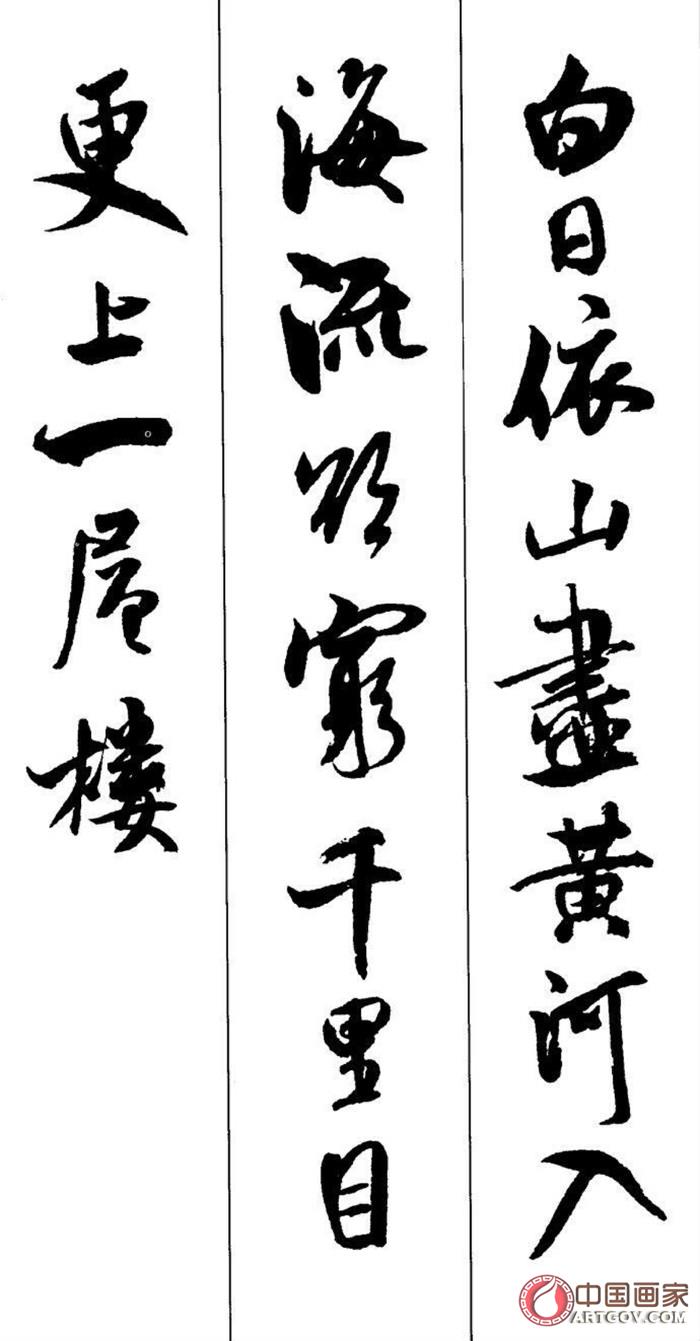 白日依山盡黃河入
海流欲窮千里目
更上一層樓
中国画家
ARTGOV.COM